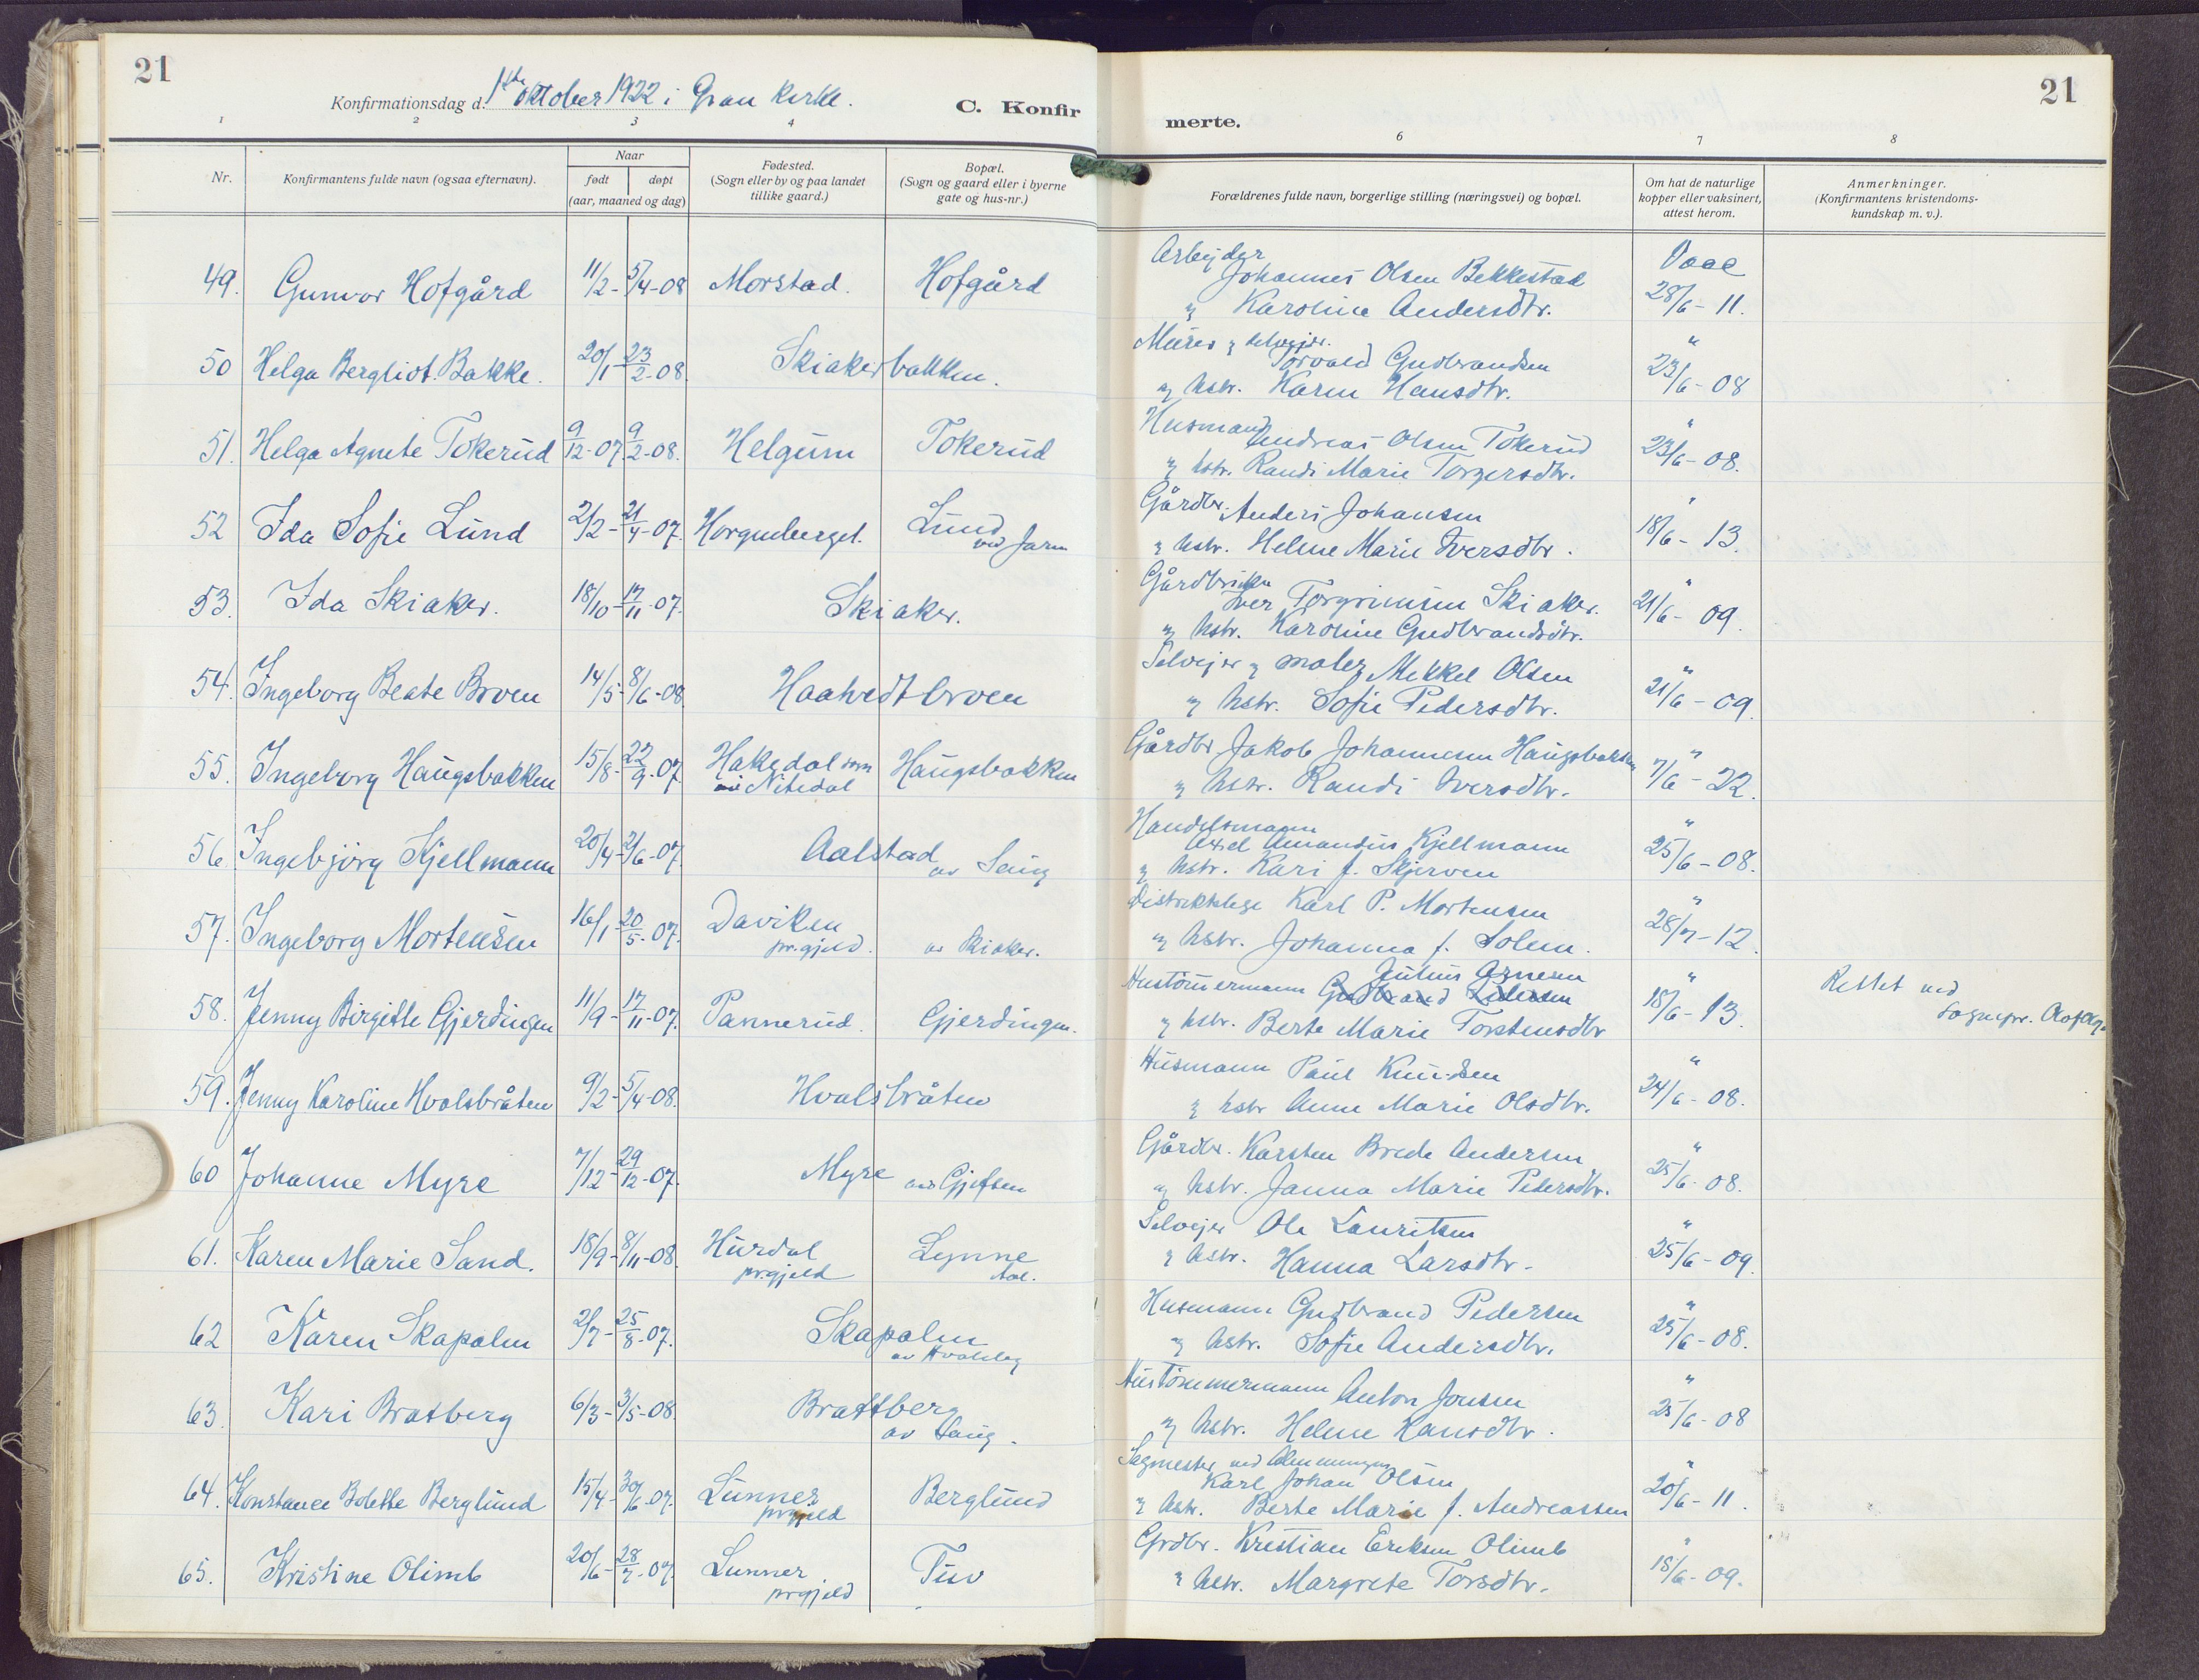 21
Konfirmationsdag d. 1ste oktober 1922 i Gran kirke.
C. Konfir
1 2 3 4
Nr.
Konfirmantens fulde navn (ogsaa efternavn).
Naar
født døpt
(aar, maaned og dag)
Fødested.
(Sogn eller by og paa landet
tillike gaard.)
Bopæl.
(Sogn og gaard eller i byerne
gate og hus-nr.)
49. Gunvor Hofgård 11/2 - 5/4-08 Morstad. Hofgård
50 Helga Bergliot Bakke. 20/1 - 23/2-08. Skiakerbakken.
51. Helga Agnete Tokerud 9/12-07. 9/2-08. Helgum Tokerud
52 Ida Sofie Lund 2/2 - 21/4-07. Horgenberget. Lund
ved Jaren
53. Ida Skiaker. 18/10 - 17/11-07. Skiaker.
54. Ingeborg Beate Broen 14/5 - 8/6-08. Haakedtbroen
55. Ingeborg Haugsbakken 15/8 - 22/9-07. Hakedal sogn Haugsbakken
Nitedal
56. Ingebjörg Kjellmann 20/4 - 2/6-07. Aalstad
av Seug
57. Ingeborg Mortensen 16/1 - 20/5-07. Daviken
prgjeld. av Skiaker.
58. Jenny Birgitte Gjerdingen 11/9 - 17/11-07. Pannerud. Gjerdingen.
59. Jenny Karoline Hvalsbråten 9/2 - 5/4-08. Hvalsbråten
60 Johanne Myre 7/12 - 29/12-07. Myre av Gjefsen
61. Karen Marie Sand. 18/9 - 8/11-08. Hurdal Lynne
prgjeld Aal.
62 Karen Skapalen 2/7 - 25/8-07. Skapalen
av Hvaleby
63. Kari Bratberg 6/3 - 3/5-08. Brattberg
av Seug.
64. Konstance Bolette Berglund 15/4 - 30/6-07. Lunner Berglund
prgjeld
65. Kristine Olimb 20/6 - 28/7-07. Lunner Tuv
prgjeld
21
merte.
6 7 8
Forældrenes fulde navn, borgerlige stilling (næringsvei) og bopæl.
Om hat de naturlige
kopper eller vaksinert,
attest herom.
Anmerkninger.
(Konfirmantens kristendoms-
kundskap m. v.).
Arbejder
Johannes Olsen Bekkestad Vacc
" Karoline Andersdtr. 28/6 - 11.
Murer & selvejer.
Torvald Gudbrandsen "
& hstr. Karen Hansdtr. 23/6 - 08
Husmand
Andreas Olsen Tokerud "
& hstr. Randi Marie Torgersdtr. 23/6 - 08.
Gårdbr. Anders Johansen "
& hstr. Helene Marie Iversdtr. 18/6 - 13.
Gårdbruker
Iver Torgrimsen Skiaker. "
& hstr. Karoline Gudbrandsdtr. 21/6 - 09.
Selvejer & maler Mikkel Olsen "
& hstr. Sofie Pedersdtr. 21/6 - 09.
Gårdbr. Jakob Johannesen Haugsbakken "
& hstr. Randi Iversdtr. 7/6 - 22.
Handelsmann
Axel Amandus Kjellmann "
& hstr. Kari f. Skjerven 25/6 - 08.
Distriktslege Karl P. Mortensen "
& hstr. Johanna f. Solem. 28/7 - 12.
Julius Arnesen
Hustömermann Gudbrand Pedersen " Rettet ved
& hstr. Berte Marie Torstensdtr 18/6 - 13. Sognepr.
Husmann Paul Knudsen "
& hstr Anne Marie Olsdtr. 24/6 - 08.
Gårdbr. Karsten Brede Andersen "
& hstr. Janna Marie Pedersdtr. 25/6 - 08.
Selvejer Ole Lauritsen "
& hstr. Hanna Larsdtr. 25/6 - 09.
Husmann Gudbrand Pedersen "
& hstr. Sofie Andersdtr. 25/6 - 08.
Hustömmermann Anton Jonsen "
& hstr. Helene Hansdtr. 25/6 - 08
Sagmester ved Almenningen
Karl Johan Olsen "
& hstr. Berte Marie f. Andreassen 20/6 - 11.
Grdbr. Kristian Eriksen Olimb "
& hstr. Margrete Torsdtr. 18/6 - 09.